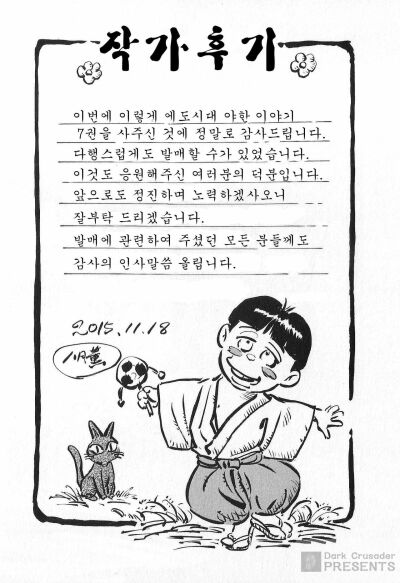 작가후기
이번에 이렇게 에도시대 야한 이야기
7권을 사주신 것에 정말로 감사드립니다.
다행스럽게도 발매할 수가 있었습니다.
이것도 응원해주신 여러분의 덕분입니다.
앞으로도 정진하며 노력하겠사오니
잘부탁 드리겠습니다.
발매에 관련하여 주셨던 모든 분들께도
감사의 인사말씀 올립니다.
2015.11.18
Dark Crusader
PRESENTS